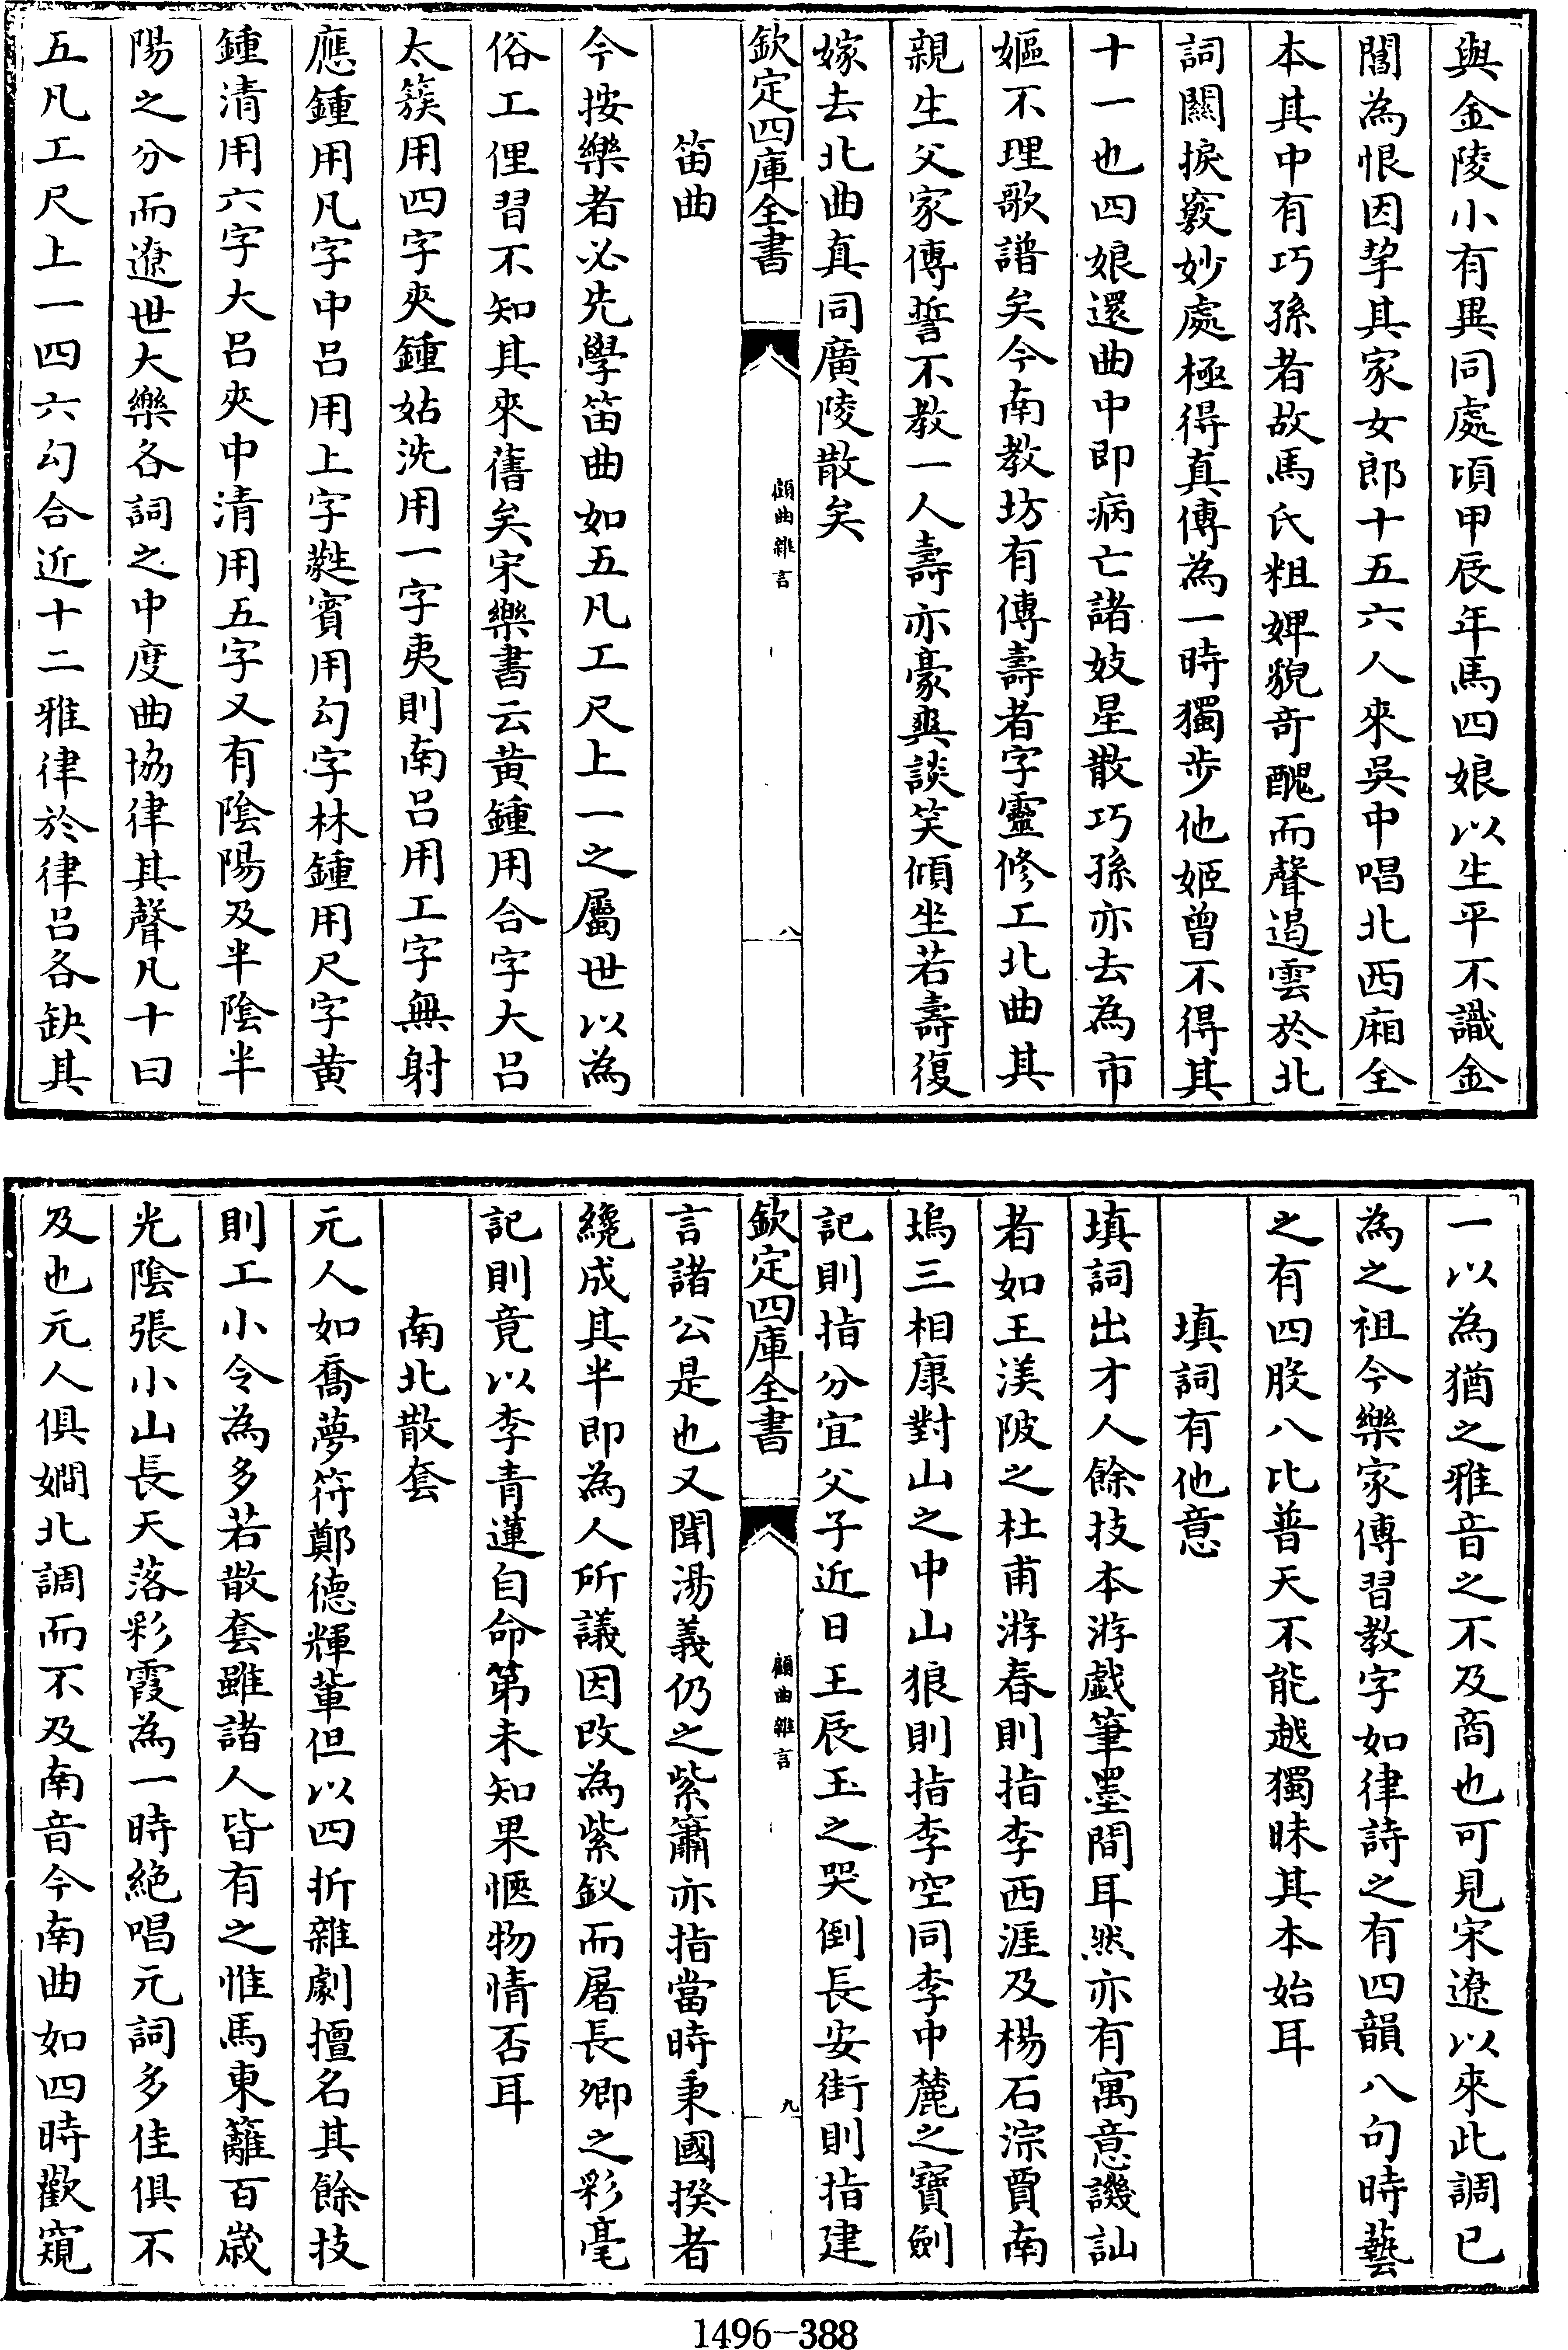 與金陵小有異同處頃甲辰年馬四娘以生平不識金
閶為恨因挈其家女郎十五六人來吳中唱北西廂全
本其中有巧孫者故馬氏粗婢貌奇醜而聲遏雲於北
詞關捩竅妙處極得真傳為一時獨步他姬曾不得其
十一也四娘還曲中即病亡諸妓星散巧孫亦去為市
嫗不理歌譜矣今南教坊有傅壽者字靈修工北曲其
親生父家傳誓不教一人壽亦豪爽談笑傾坐若壽復
嫁去北曲真同廣陵散矣
欽定四庫全書
顧曲雜言
八
笛曲
今按樂者必先學笛曲如五凡工尺上一之屬世以為
俗工俚習不知其來舊矣宋樂書云黄鍾用合字大呂
太簇用四字夾鍾姑洗用一字夷則南呂用工字無射
應鍾用凡字中呂用上字蕤賓用勾字林鍾用尺字黄
鍾清用六字大呂夾中清用五字又有陰陽及半陰半
陽之分而遼世大樂各詞之中度曲協律其聲凡十曰
五凡工尺上一四六勾合近十二雅律於律呂各缺其
一以為猶之雅音之不及商也可見宋遼以來此調已
為之祖今樂家傳習教字如律詩之有四韻八句時藝
之有四股八比普天不能越獨昧其本始耳
填詞有他意
填詞出才人餘技本游戲筆墨間耳然亦有寓意譏訕
者如王渼陂之杜甫游春則指李西涯及楊石淙賈南
塢三相康對山之中山狼則指李空同李中麓之寶劍
記則指分宜父子近日王辰玉之哭倒長安街則指建
欽定四庫全書
顧曲雜言
九
言諸公是也又聞湯義仍之紫簫亦指當時秉國揆者
纔成其半即為人所議因改為紫釵而屠長卿之彩毫
記則竟以李青蓮自命第未知果愜物情否耳
南北散套
元人如喬夢符鄭德輝輩但以四折雜劇擅名其餘技
則工小令為多若散套雖諸人皆有之惟馬東籬百歲
光陰張小山長天落彩霞為一時絕唱元詞多佳俱不
及也元人俱嫺北調而不及南音今南曲如四時歡窺
1496-388